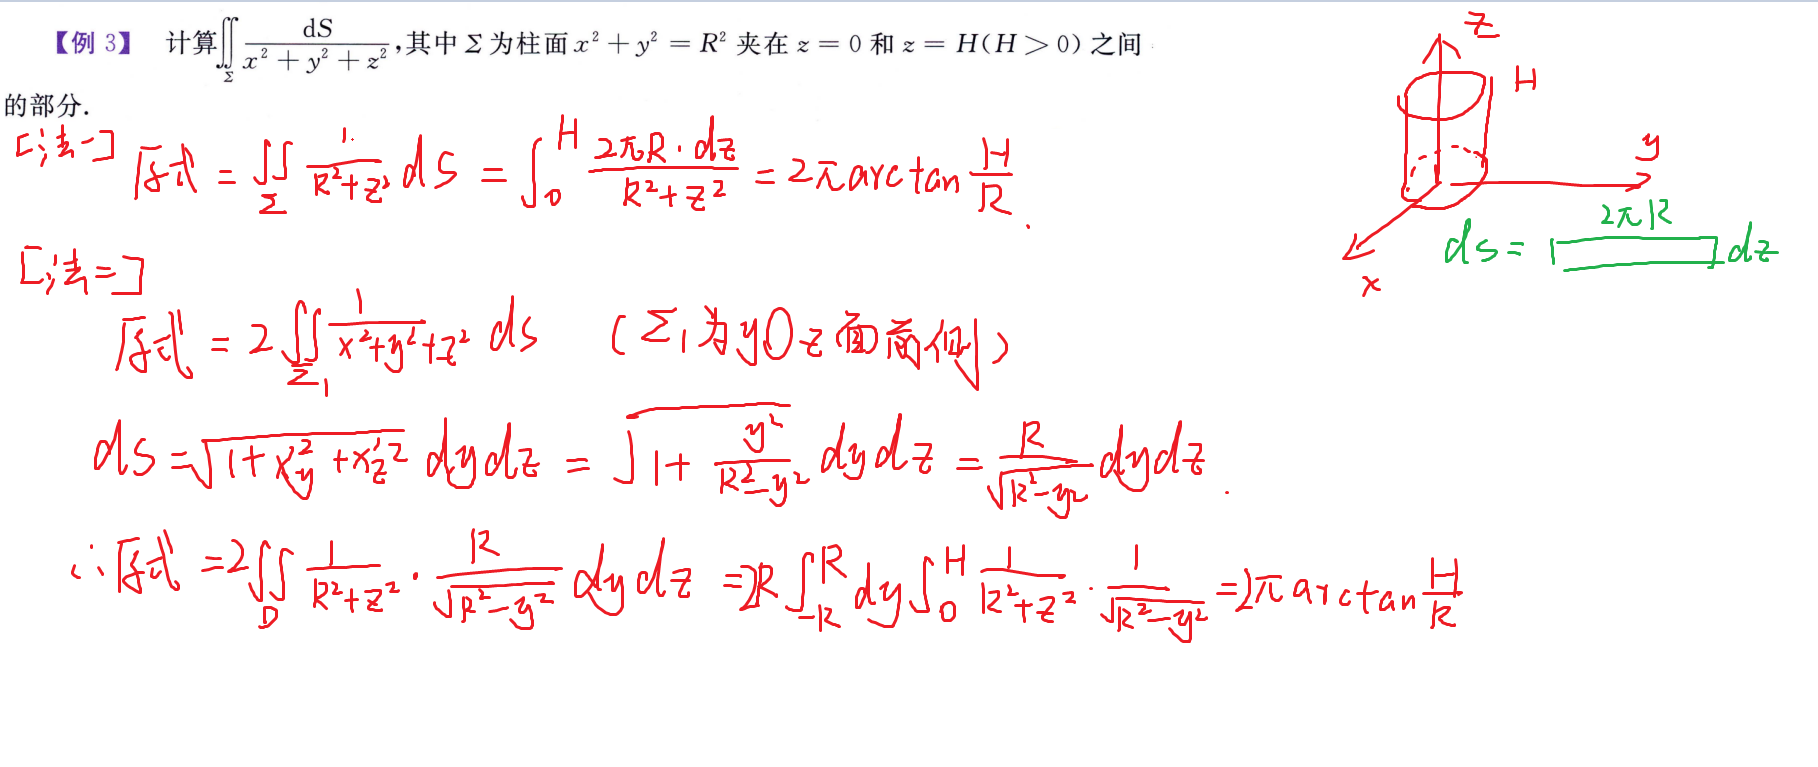 【例 3】 计算∬_Σ dS/(x² + y² + z²),其中 Σ 为柱面 x² + y² = R² 夹在 z = 0 和 z = H(H > 0) 之间
的部分.
[法一] 原式 = ∬_Σ 1/(R²+z²) dS = ∫_0^H 2πR·dz/(R²+z²) = 2π arctan H/R.
[法二]
原式 = 2∬_Σ₁ 1/(x²+y²+z²) ds (Σ₁为yOz面前侧)
ds = √(1+x'_y²+x'_z²) dydz = √(1+ y²/(R²-y²)) dydz = R/√(R²-y²) dydz.
∴原式 =2∬_D 1/(R²+z²) · R/√(R²-y²) dydz =2R∫_{-R}^R dy∫_0^H 1/(R²+z²) · 1/√(R²-y²) =2π arctan H/R
z
H
y
x
ds= 2πR dz